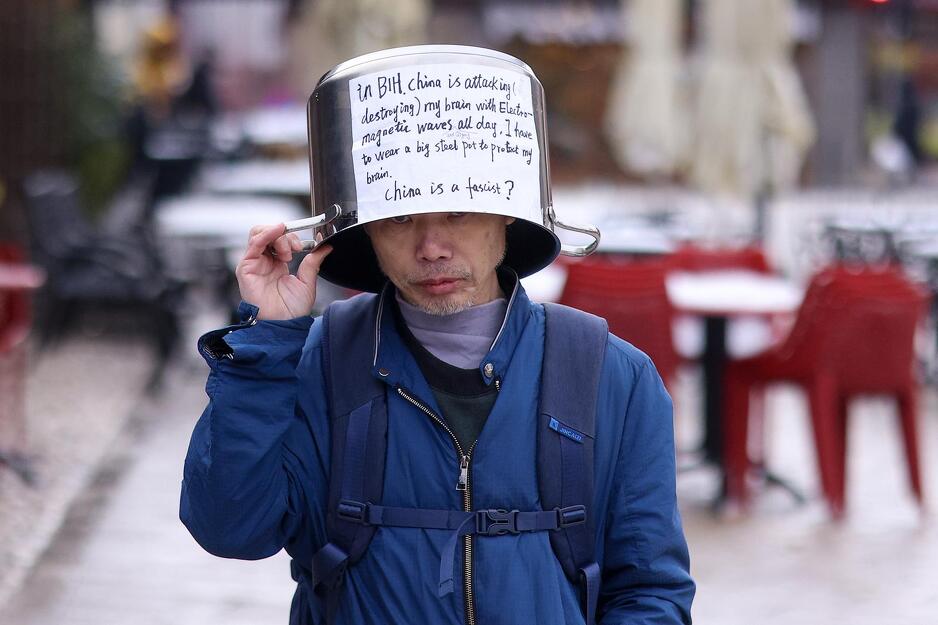 in BIH, china is attacking (
destroying) my brain with Electro-
magnetic waves all day, I have
to wear a big steel pot to protect my
brain.
china is a fascist?